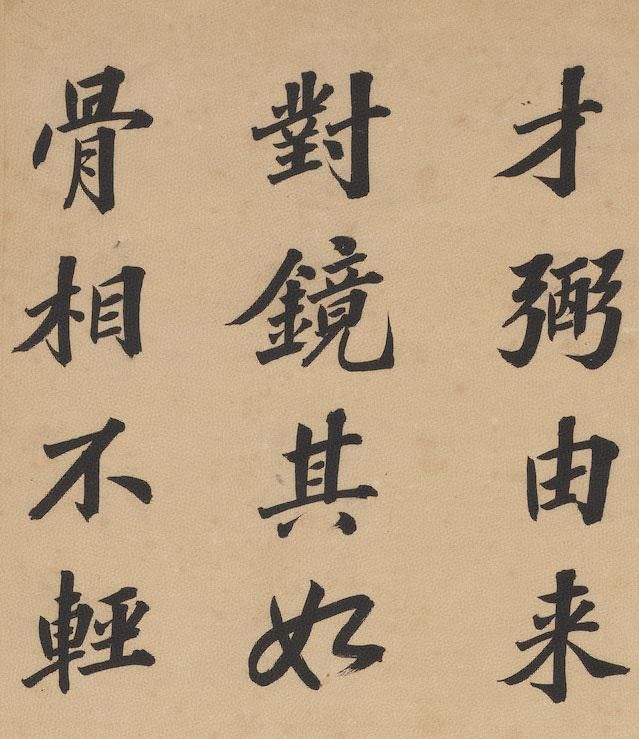 才弼由来
對鏡其如
骨相不輕